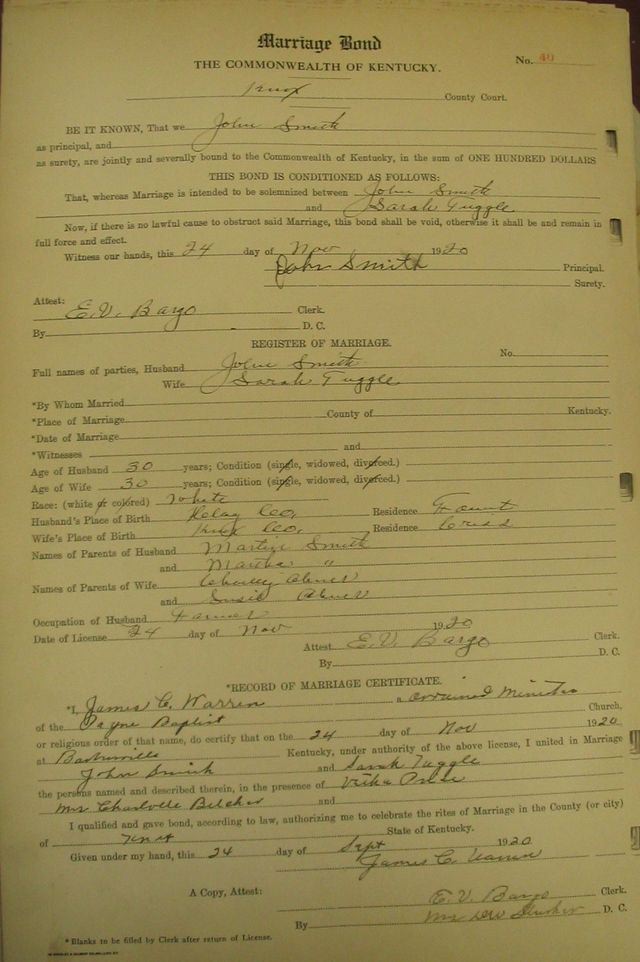 Marriage Bond
THE COMMONWEALTH OF KENTUCKY.
No. 40
Knox County Court.
BE IT KNOWN, That we John Smith
as principal, and
as surety, are jointly and severally bound to the Commonwealth of Kentucky, in the sum of ONE HUNDRED DOLLARS
THIS BOND IS CONDITIONED AS FOLLOWS:
That, whereas Marriage is intended to be solemnized between John Smith
and Sarah Tuggle
Now, if there is no lawful cause to obstruct said Marriage, this bond shall be void, otherwise it shall be and remain in
full force and effect.
Witness our hands, this 24 day of Nov 1920
John Smith Principal.
Surety.
Attest:
E.V. Bargo Clerk.
By D. C.
REGISTER OF MARRIAGE.
No.
Full names of parties, Husband John Smith
Wife Sarah Tuggle
*By Whom Married
*Place of Marriage County of Kentucky.
*Date of Marriage
*Witnesses and
Age of Husband 30 years; Condition (single, widowed, divorced.)
Age of Wife 30 years; Condition (single, widowed, divorced.)
Race: (white or colored) White
Husband's Place of Birth Clay Co, Residence Fount
Wife's Place of Birth Knox Co, Residence
Names of Parents of Husband Martin Smith
and Martha "
Names of Parents of Wife Abner
and Susie Abner
Occupation of Husband Farmer
Date of License 24 day of Nov 1920
Attest E.V. Bargo Clerk.
By D. C.
*RECORD OF MARRIAGE CERTIFICATE.
*I, James C. Warren a ordained minister
of the Payne Baptist Church,
or religious order of that name, do certify that on the 24 day of Nov 1920
at Barbourville Kentucky, under authority of the above license, I united in Marriage
John Smith and Sarah Tuggle
the persons named and described therein, in the presence of
Mrs Charlotte Belcher and
I qualified and gave bond, according to law, authorizing me to celebrate the rites of Marriage in the County (or city)
of Knox State of Kentucky.
Given under my hand, this 24 day of Sept 1920
James C. Warren
A Copy, Attest: E.V. Bargo Clerk.
By D. C.
*Blanks to be filled by Clerk after return of License.